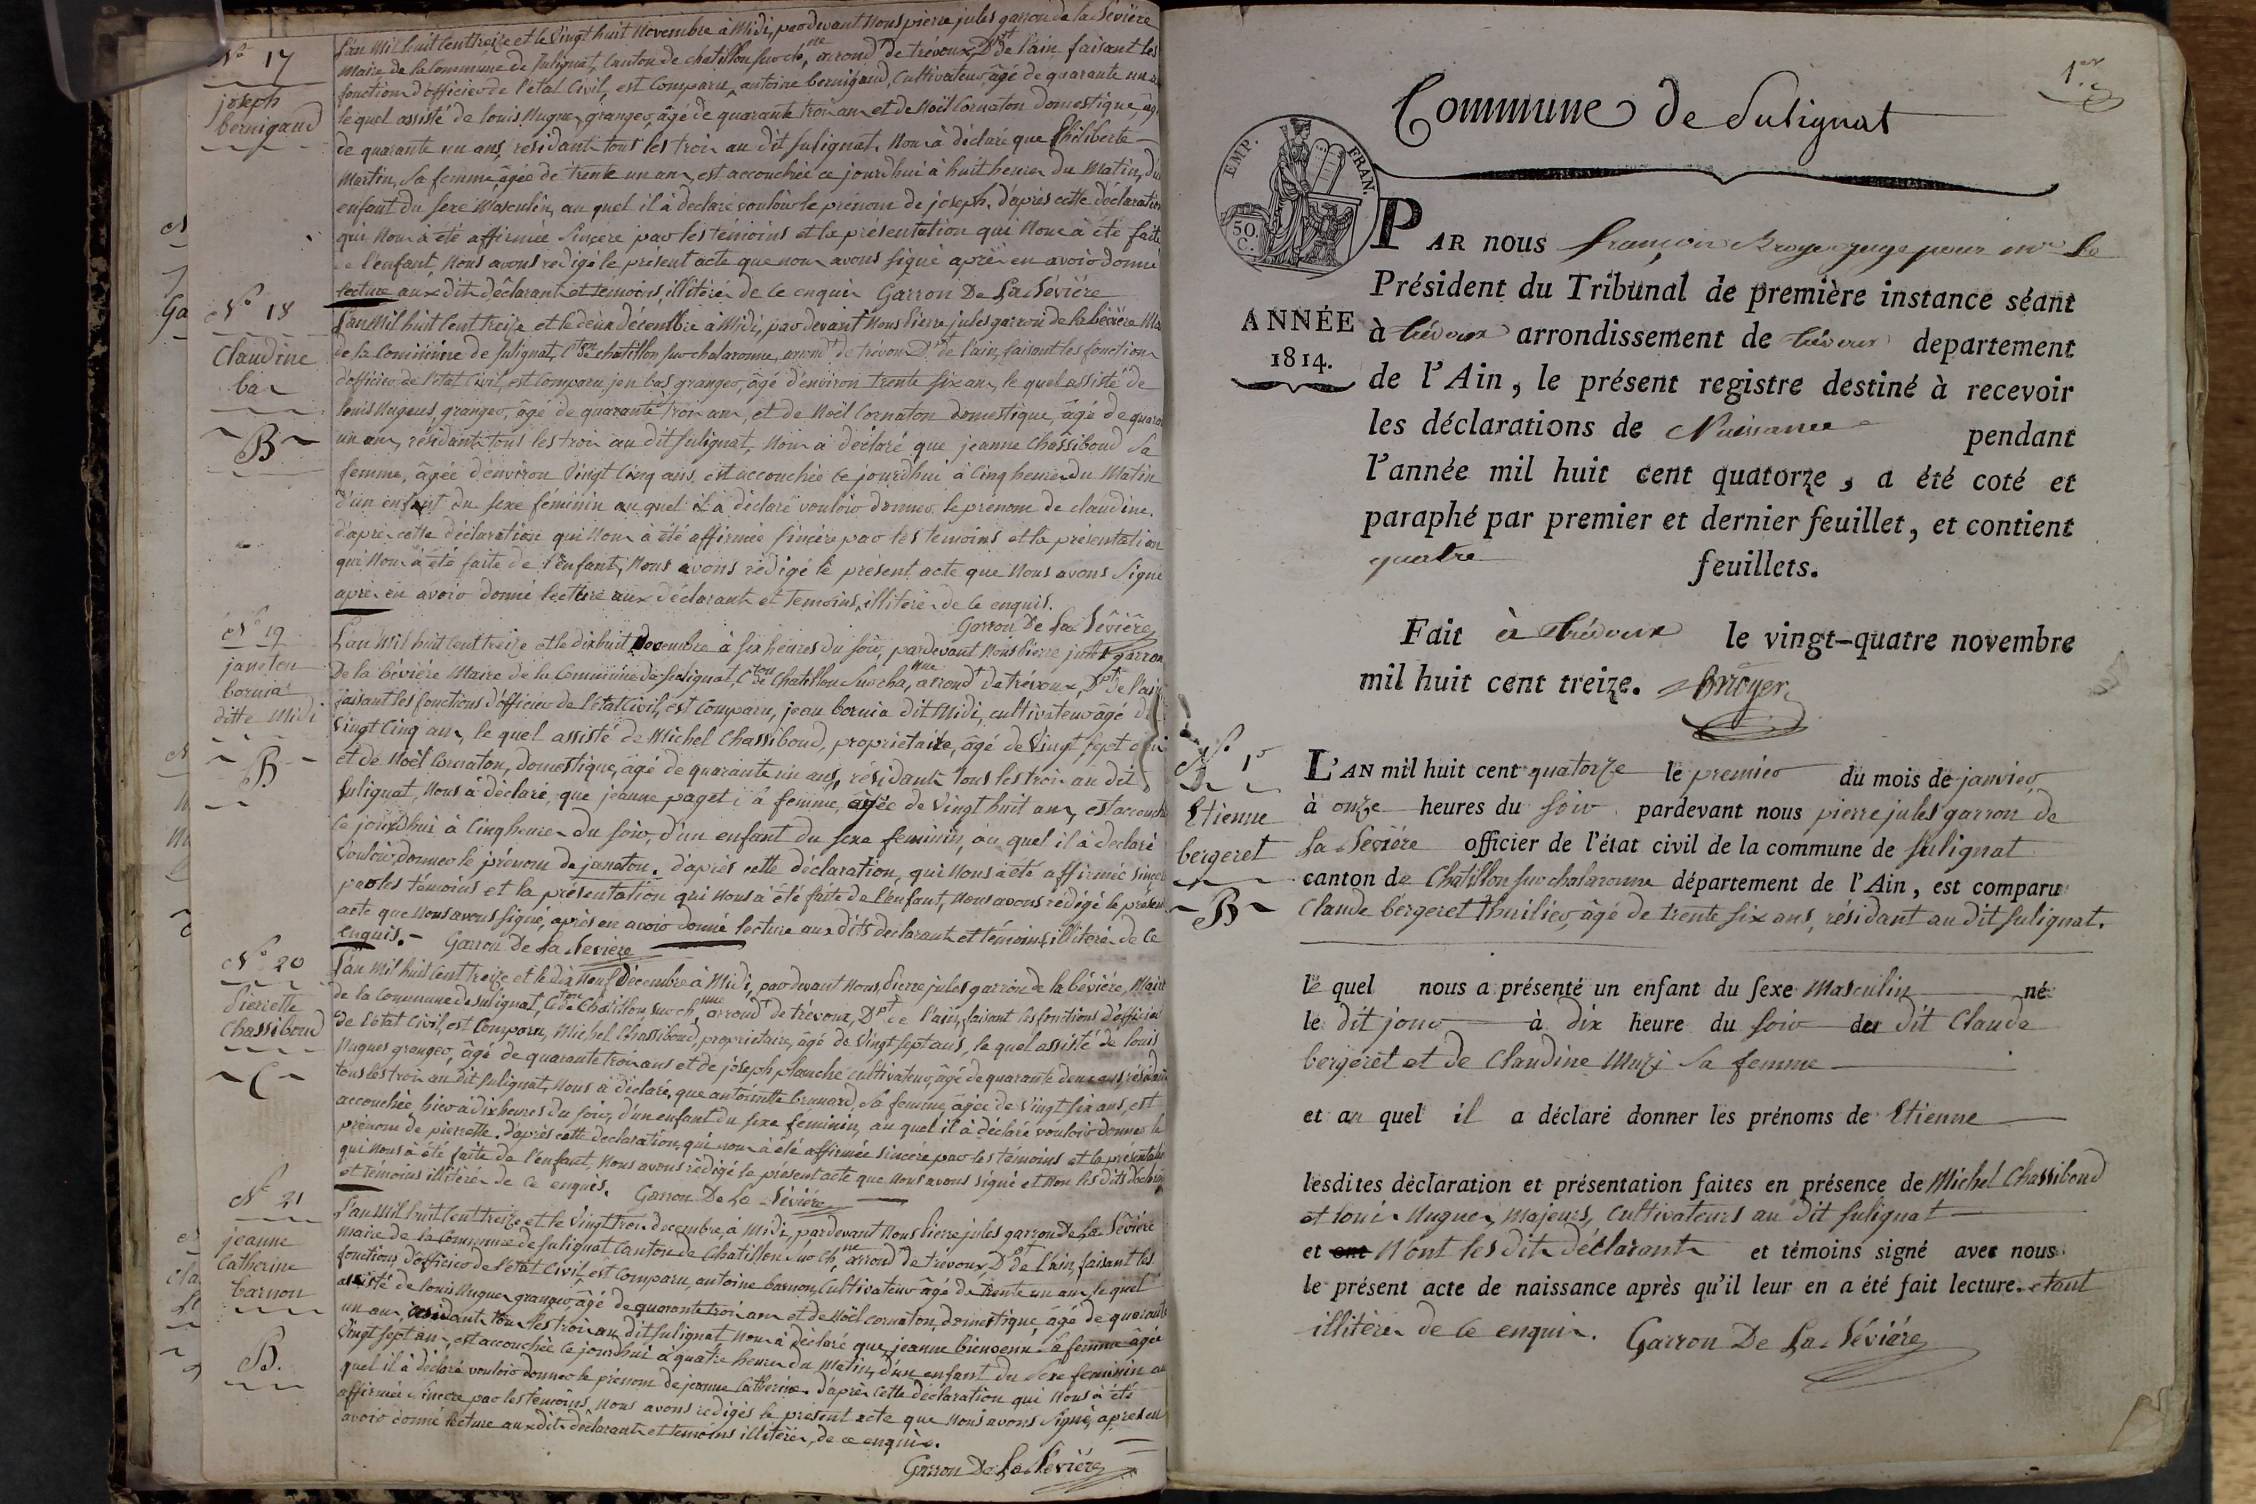 N° 17
joseph
bernigaud
L'an Mil huit Cent treize et le vingt huit Novembre à Midi, par devant Nous pierre jules garron de la Bévière
Maire de la Commune de Sulignat, Canton de chatillon sur ch.ne arrond.t de trévoux, D.pt de l'ain faisant les
fonctions d'officier de l'état Civil, est Comparu, antoine bernigaud, Cultivateur âgé de quarante un an
le quel assisté de louis Nugues, granger, âgé de quarante trois ans et de Noël Cornaton domestique, âgé
de quarante un ans, résidants tous les trois au dit sulignat. Nous à déclaré que Philiberte
Martin, sa femme, âgée de trente un ans, est accouchée ce jourd'hui à huit heures du Matin, d'un
enfant du sexe Masculin, au quel il à déclaré vouloir le prénom de joseph. d'après cette déclaration
qui Nous à été affirmée sincere par les témoins et la présentation qui Nous à été faite
de l'enfant, Nous avons redigé le present acte que nous avons signé après en avoir donné
lecture aux dits déclarant et temoins, illitérés de ce enquis Garron De La Bévière
N° 18
Claudine
bas
B
L'an Mil huit Cent treize et le deux décembre à Midi, par devant Nous Pierre jules garron de la bévière Ma
de la Commune de sulignat, C.ton de chatillon sur chalaronne, arrond.t de trévoux D.pt de l'ain, faisant les fonctions
d'officier de l'état Civil, est Comparu jean bas granger, âgé d'environ trente six ans, le quel assisté de
louis Nugues, granger, âgé de quarante trois ans, et de Noël Cornaton domestique, âgé de quaran
un ans, résidants tous les trois au dit sulignat, Nous à déclaré que jeanne Chassiboud sa
femme, âgée d'environ vingt Cinq ans, est accouchée ce jourd'hui à Cinq heures du Matin
d'un enfant du sexe féminin au quel il a déclaré vouloir donner le prenom de claudine.
d'après cette déclaration qui Nous à été affirmée sincère par les temoins et la présentation
qui Nous à été faite de l'enfant, Nous avons rédigé le présent acte que Nous avons signé
après en avoir donné lecture aux déclarant et temoins, illiterés de ce enquis.
Garron De La Bévière
N° 19
janeton
bornia
ditte Midi
B
L'an Mil huit Cent treize et le dix huit Decembre à six heures du soir, pardevant Nous Pierre jules garron
De la bévière Maire de la Commune de sulignat, C.ton de Chatillon sur cha.nne, arrond.t de trévoux, D.pt de l'ain
faisant les fonctions d'officier de l'état Civil, est Comparu, jean bornia dit Midi, cultivateur âgé de
Vingt Cinq ans, le quel assisté de Michel Chassiboud, proprietaire, âgé de Vingt sept ans
et de Noël Cornaton, domestique, âgé de quarante un ans, résidants tous les trois au dit
sulignat, Nous à déclaré, que jeanne paget sa femme, agée de vingt huit ans, est accouchée
ce jourd'hui à Cinq heures du soir, d'un enfant du sexe feminin, au quel il à déclaré
vouloir donner le prénom de janeton. d'après cette déclaration, qui Nous à été affirmée sincère
par les témoins et la présentation qui Nous à été faite de l'enfant, Nous avons rédigé le présent
acte que Nous avons signé, après en avoir donné lecture aux dits déclarant et témoins, illiterés de ce
enquis. Garron De La Bévière
N° 20
Pierrette
Chassiboud
C
L'an Mil huit Cent treize et le dix Neuf Décembre à Midi, par devant Nous, Pierre jules garron de la bévière, Maire
de la Commune de sulignat, C.ton de Chatillon sur ch.nne arrond.t de trévoux, D.pt de l'ain, faisant les fonctions d'officier
de l'état Civil, est Comparu, Michel Chassiboud, proprietaire, âgé de Vingt sept ans, le quel assisté de louis
Nugues granger, âgé de quarante trois ans et de joseph planche cultivateur, âgé de quarante deux ans, résidants
tous les trois au dit sulignat, Nous à déclaré, que antoinette brunard, sa femme, âgée de Vingt six ans, est
accouchée hier à dix heures du soir, d'un enfant du sexe féminin, au quel il à déclaré vouloir donner le
prénom de pierrette. d'après cette declaration, qui nous à été affirmée sincère par les témoins et la présentation
qui Nous à été faite de l'enfant, Nous avons rédigé le présent acte que Nous avons signé et non les dits déclarant
et témoins illitérés de ce enquis. Garron De La Bévière
N° 21
jeanne
Catherine
barnon
B.
L'an Mil huit Cent treize et le vingt trois decembre, à Midi, pardevant Nous Pierre jules garron de La Bévière
maire de la commune de sulignat Canton de Chatillon sur Ch.ne arrond.t de trévoux, D.pt de l'ain, faisant les
fonctions d'officier de l'état Civil, est Comparu, antoine barnon, Cultivateur âgé de trente un ans, le quel
assisté de louis Nugues granger, âgé de quarante trois ans et de Noël cornaton, domestique, âgé de quarante
un ans, résidants tous les trois au dit sulignat, Nous à déclaré que, jeanne bienvenu sa femme agée
Vingt sept ans, est accouchée ce jourd'hui à quatre heures du Matin, d'un enfant du sexe feminin au
quel il à déclaré vouloir donner le prénom de jeanne Catherine. d'après cette déclaration qui Nous à été
affirmée sincere par les témoins, Nous avons redigés le present acte que Nous avons signé, après en
avoir donné lecture aux dits déclarant et temoins illitérés, de ce enquis.
Garron De La Bévière
1.er
Commune de Sulignat
EMP. FRAN.
50. C.
ANNÉE
1814.
PAR nous françois Broyer juge pour m.r le
Président du Tribunal de première instance séant
à trévoux arrondissement de trévoux departement
de l'Ain, le présent registre destiné à recevoir
les déclarations de Naissance pendant
l'année mil huit cent quatorze, a été coté et
paraphé par premier et dernier feuillet, et contient
quatre feuillets.
Fait à trévoux le vingt-quatre novembre
mil huit cent treize. Broyer
N.° 1.er
Etienne
bergeret
B
L'AN mil huit cent quatorze le premier du mois de janvier,
à onze heures du soir pardevant nous pierre jules garron de
La Bévière officier de l'état civil de la commune de sulignat
canton de Chatillon sur chalaronne département de l'Ain, est comparu
Claude bergeret thuilier, âgé de trente six ans, résidant au dit sulignat.
le quel nous a présenté un enfant du sexe Masculin né
le dit jour à dix heure du soir du dit Claude
bergeret et de Claudine Muzi sa femme
et au quel il a déclaré donner les prénoms de Etienne
lesdites déclaration et présentation faites en présence de Michel Chassiboud
et louis Nugues, majeurs, Cultivateurs au dit sulignat
et ont N'ont les dits déclarants et témoins signé avec nous
le présent acte de naissance après qu'il leur en a été fait lecture. étant
illitérés de ce enquis. Garron De La Bévière